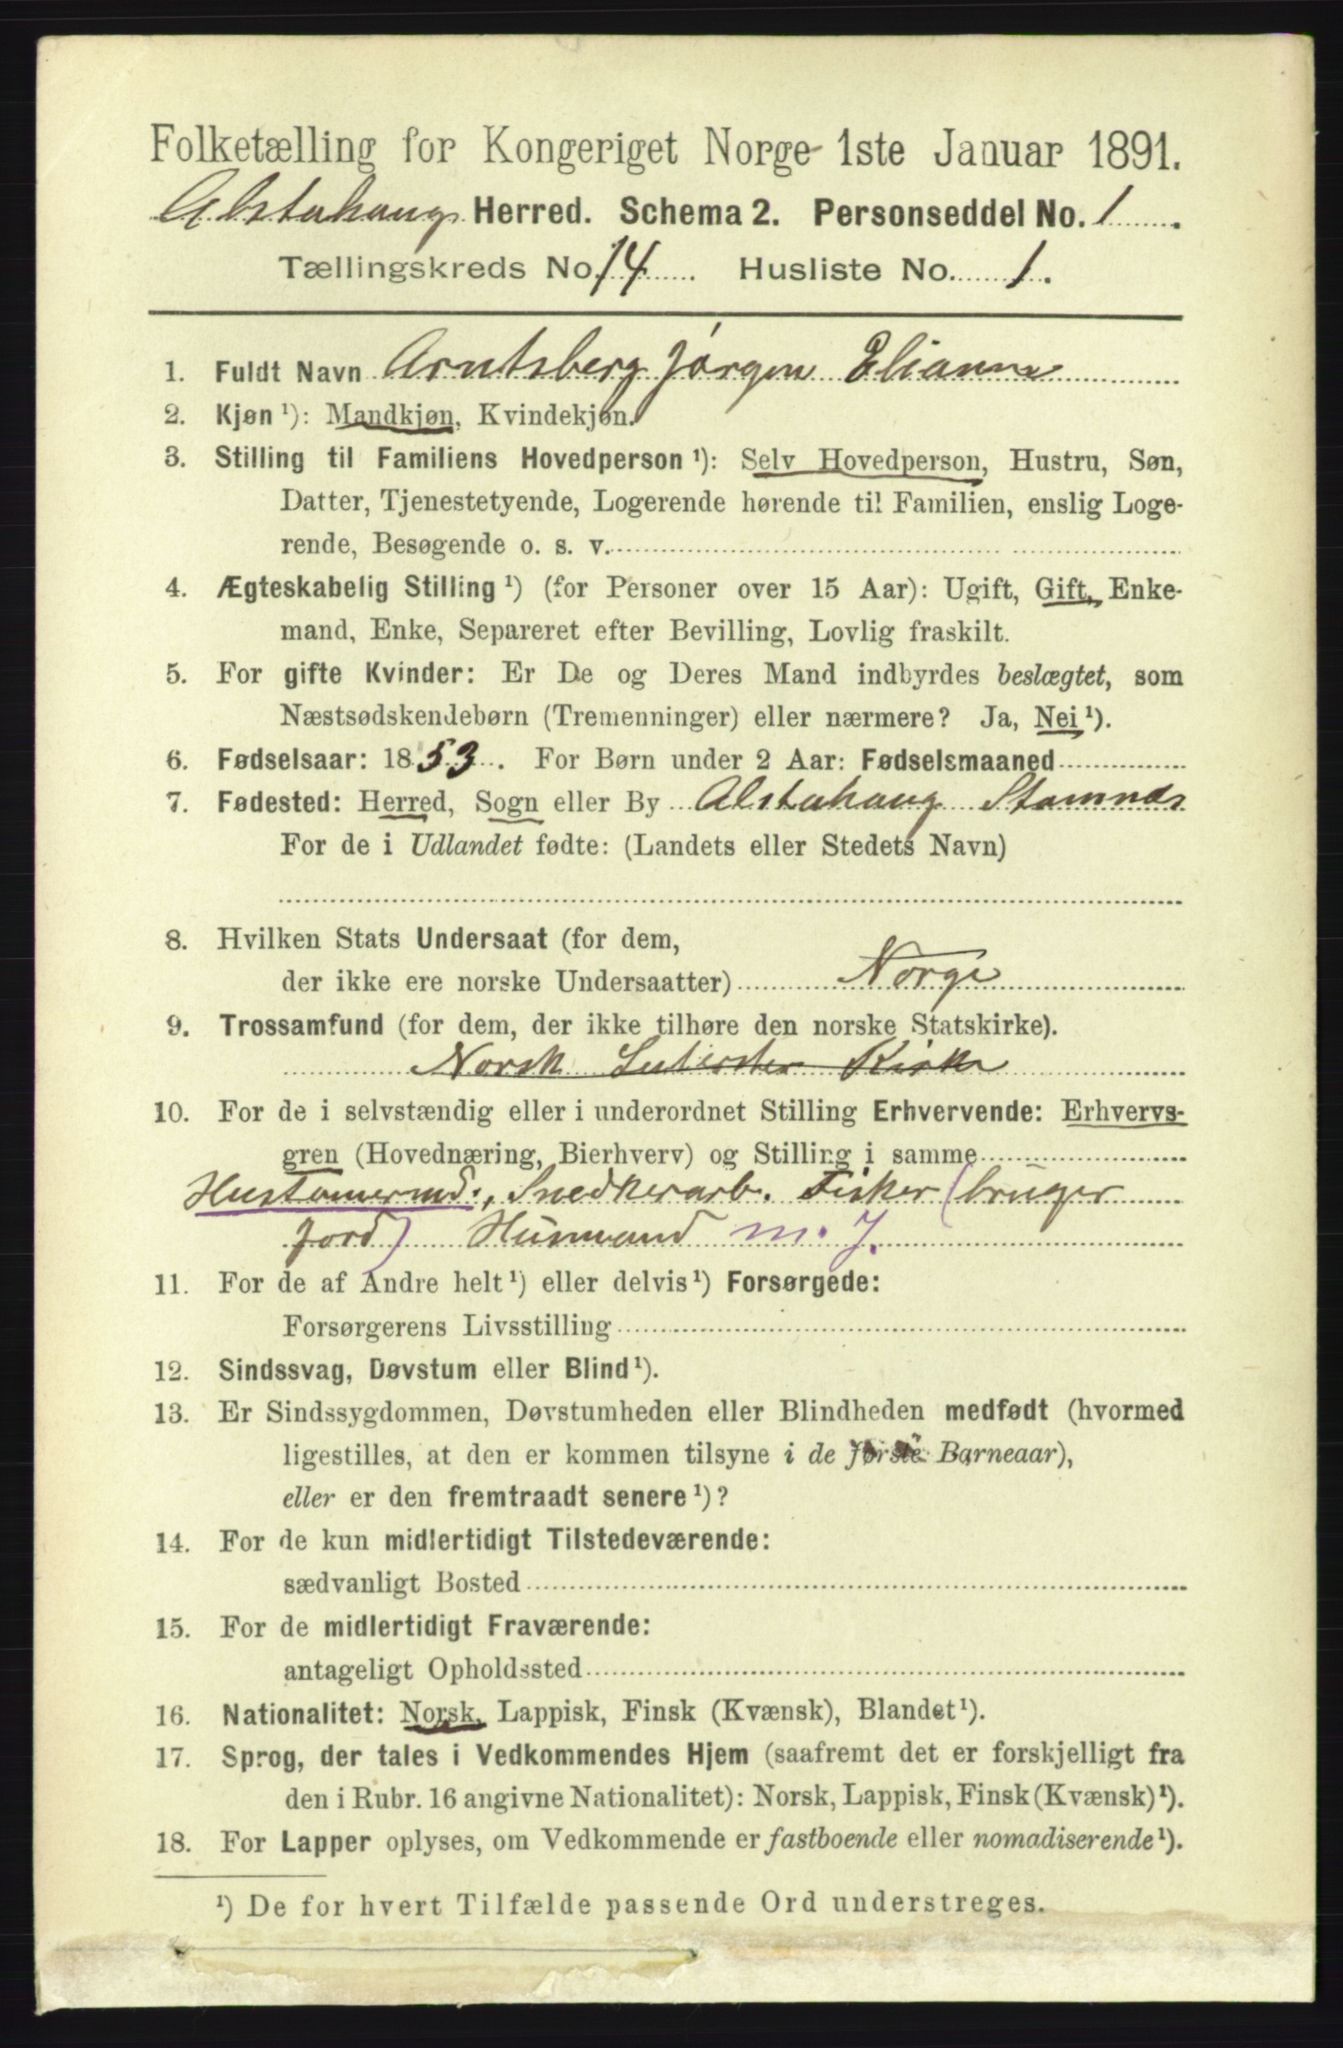 Folketælling for Kongeriget Norge 1ste Januar 1891.
Alstahaug Herred. Schema 2. Personseddel No. 1.
Tællingskreds No. 14 Husliste No. 1.
1. Fuldt Navn Arntsberg Jørgen
2. Kjøn ¹): Mandkjøn, Kvindekjøn.
3. Stilling til Familiens Hovedperson ¹): Selv Hovedperson, Hustru, Søn,
Datter, Tjenestetyende, Logerende hørende til Familien, enslig Loge-
rende, Besøgende o. s. v.
4. Ægteskabelig Stilling ¹) (for Personer over 15 Aar): Ugift, Gift, Enke-
mand, Enke, Separeret efter Bevilling, Lovlig fraskilt.
5. For gifte Kvinder: Er De og Deres Mand indbyrdes beslægtet, som
Næstsødskendebørn (Tremenninger) eller nærmere? Ja, Nei ¹).
6. Fødselsaar: 1853. For Børn under 2 Aar: Fødselsmaaned
7. Fødested: Herred, Sogn eller By Alstahaug Stamnes
For de i Udlandet fødte: (Landets eller Stedets Navn)
8. Hvilken Stats Undersaat (for dem,
der ikke ere norske Undersaatter) Norge
9. Trossamfund (for dem, der ikke tilhøre den norske Statskirke).
Norsk Kirke
10. For de i selvstændig eller i underordnet Stilling Erhvervende: Erhvervs-
gren (Hovednæring, Bierhverv) og Stilling i samme
Hustømermd., Snedkerarb. Fisker (bruger
jord) Husmand m. J.
11. For de af Andre helt ¹) eller delvis ¹) Forsørgede:
Forsørgerens Livsstilling
12. Sindssvag, Døvstum eller Blind ¹).
13. Er Sindssygdommen, Døvstumheden eller Blindheden medfødt (hvormed
ligestilles, at den er kommen tilsyne i de første Barneaar),
eller er den fremtraadt senere ¹)?
14. For de kun midlertidigt Tilstedeværende:
sædvanligt Bosted
15. For de midlertidigt Fraværende:
antageligt Opholdssted
16. Nationalitet: Norsk, Lappisk, Finsk (Kvænsk), Blandet ¹).
17. Sprog, der tales i Vedkommendes Hjem (saafremt det er forskjelligt fra
den i Rubr. 16 angivne Nationalitet): Norsk, Lappisk, Finsk (Kvænsk) ¹).
18. For Lapper oplyses, om Vedkommende er fastboende eller nomadiserende ¹).
¹) De for hvert Tilfælde passende Ord understreges.